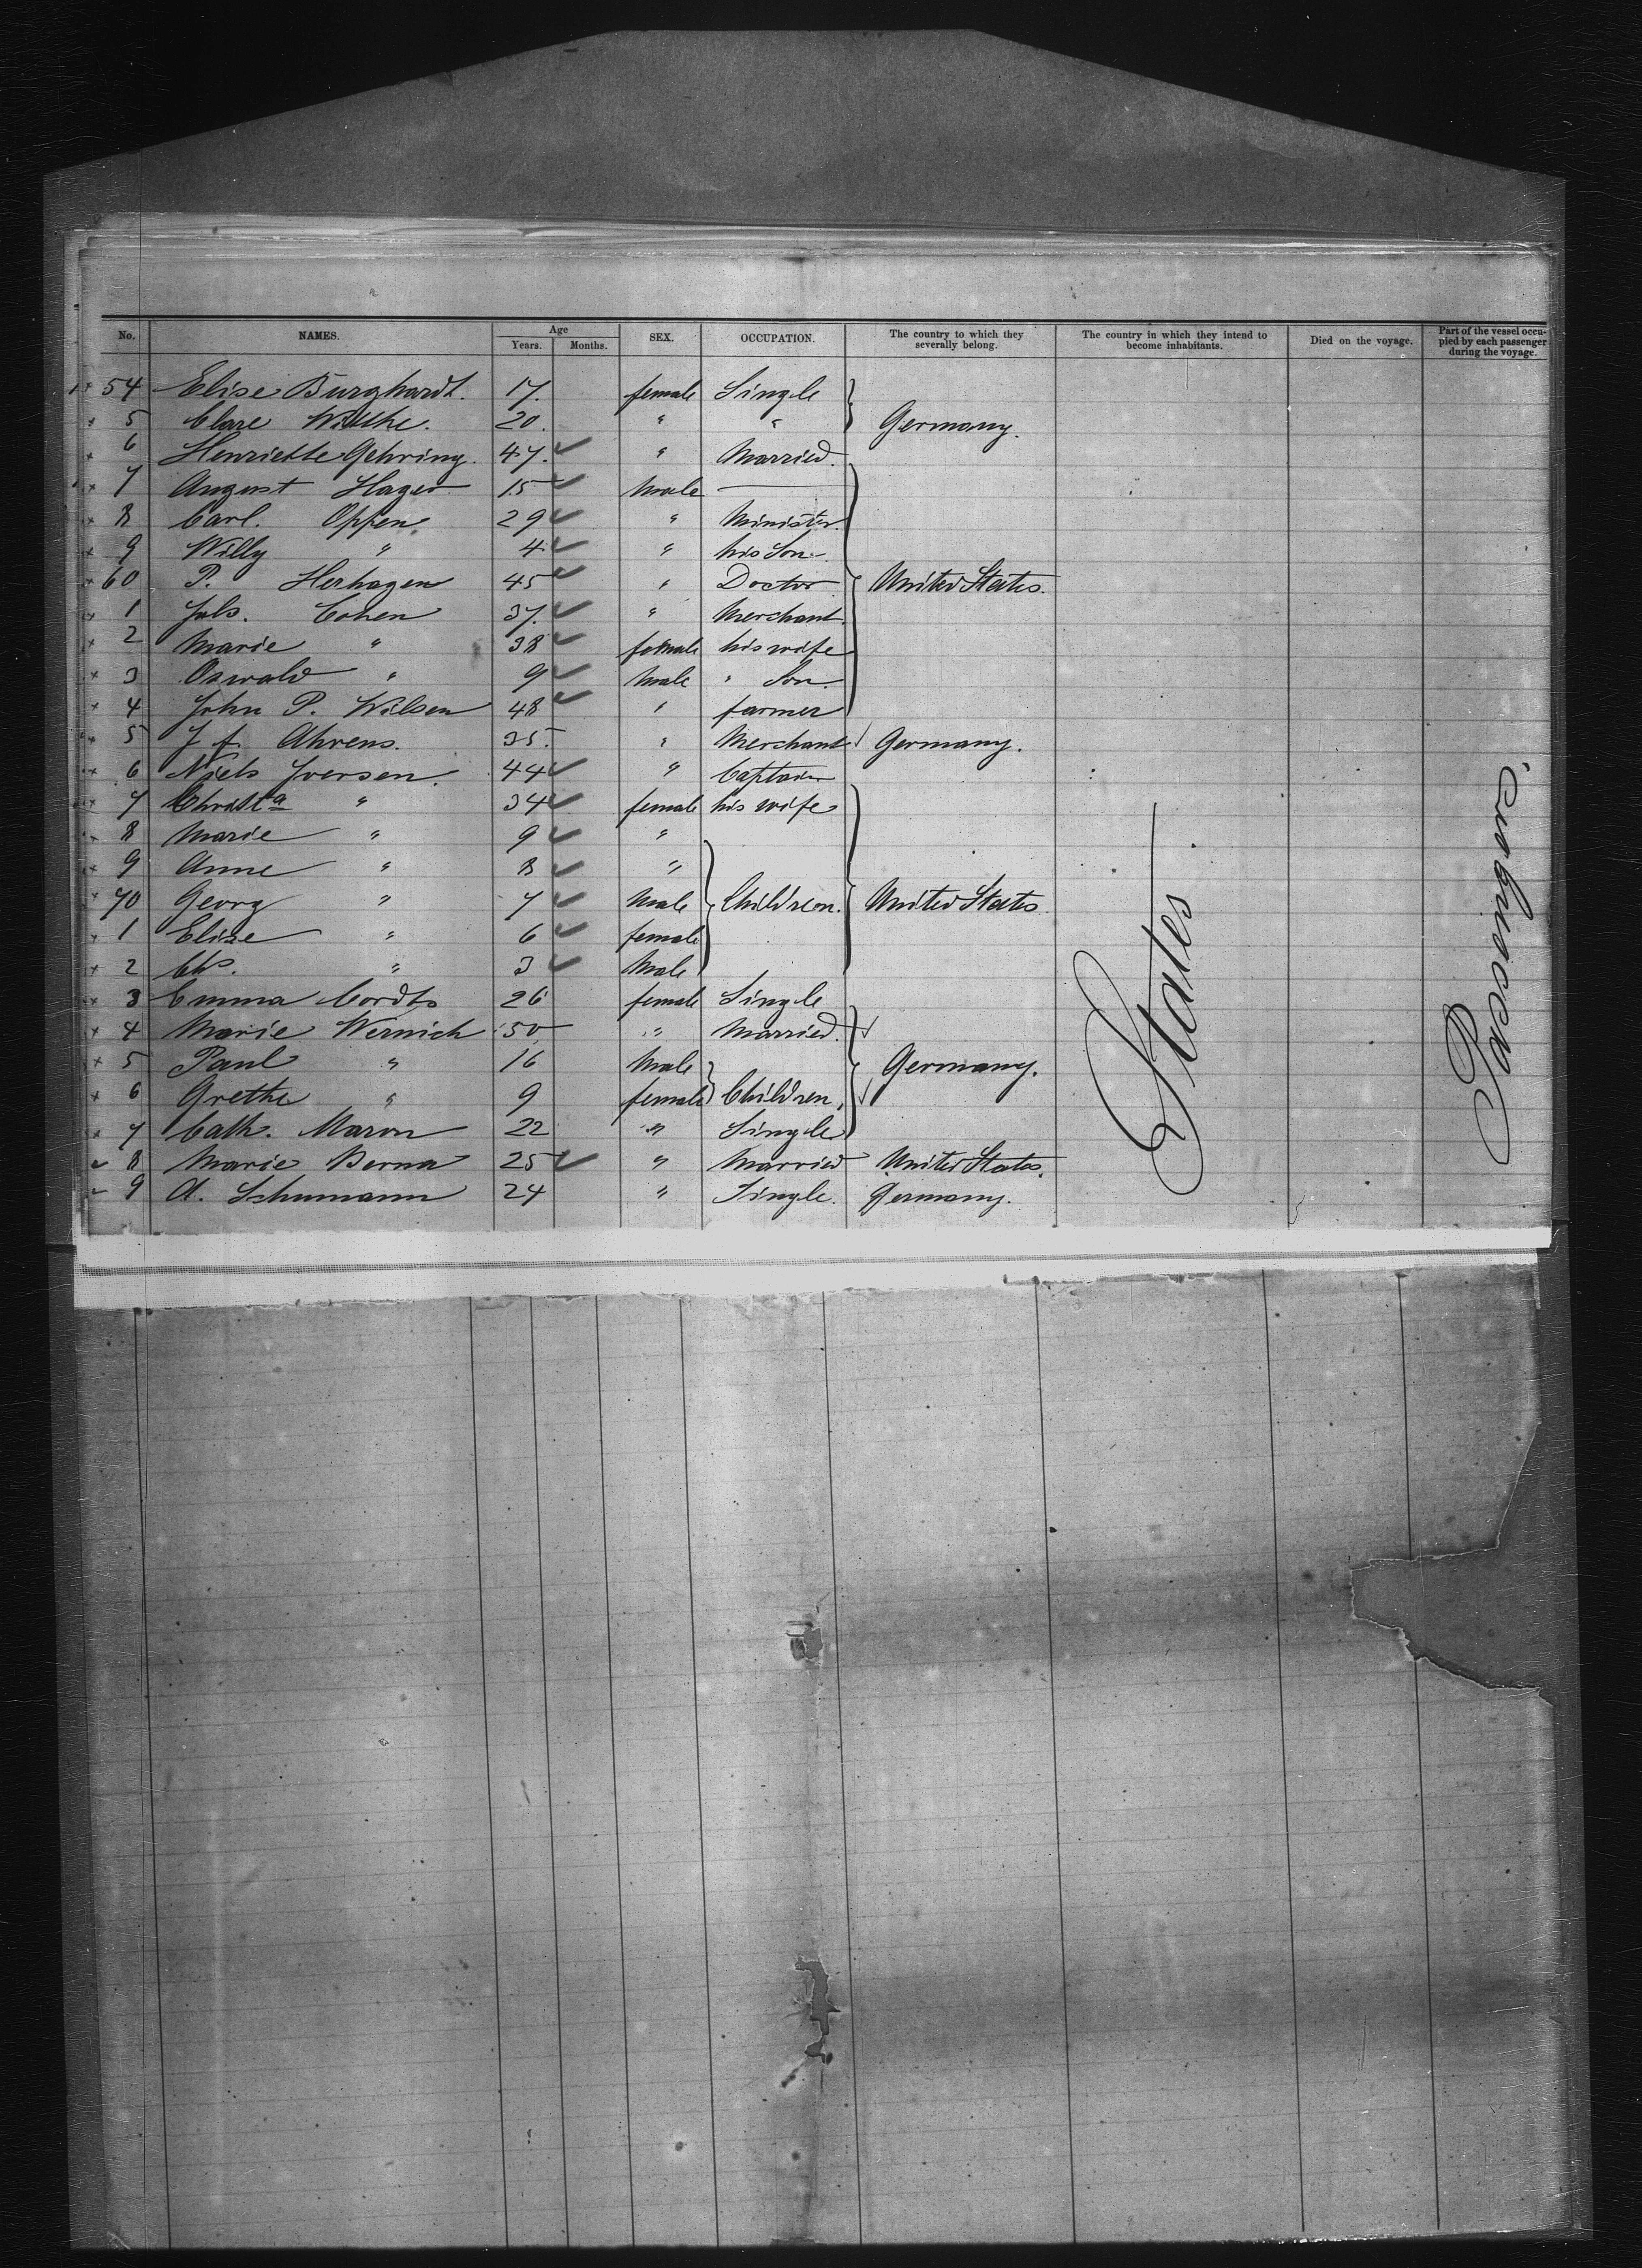 No. NAMES. Age SEX. OCCUPATION. The country to which they severally belong. The country in which they intend to become inhabitants. Died on the voyage. Part of the vessel occupied by each passenger during the voyage.
Years. Months.
54 Elise Burghardt. 17. female Single
5 Clare Witthe. 20. " " Germany.
6 Henriette Gehring. 47. " Married.
7 August Hager 15 Male —
8 Carl. Oppen 29 " Minister
9 Willy " 4 " his Son
60 P. Herhagen 45 " Doctor United States.
1 Juls. Cohen 37. " Merchant.
2 Marie " 38 female his wife
3 Oswald " 9 Male " Son.
4 John P. Wilsen 48 " farmer
5 J. f. Ahrens. 35. " Merchant Germany.
6 Niels Iversen. 44 " Captain
7 Christa " 34 female his wife
8 Marie " 9 "
9 Anne " 8 "
70 Georg " 7 Male Children. United States
1 Elise " 6 female
2 Chs. " 3 Male
3 Emma Cordts 26 female Single
4 Marie Wernich 50 " Married.
5 Paul " 16 Male Germany.
6 Grethe " 9 female Children.
7 Cath. Maron 22 " Single
8 Marie Berna 25 " Married United States.
9 A. Schumann 24 " Single. Germany.
States
Passengers.